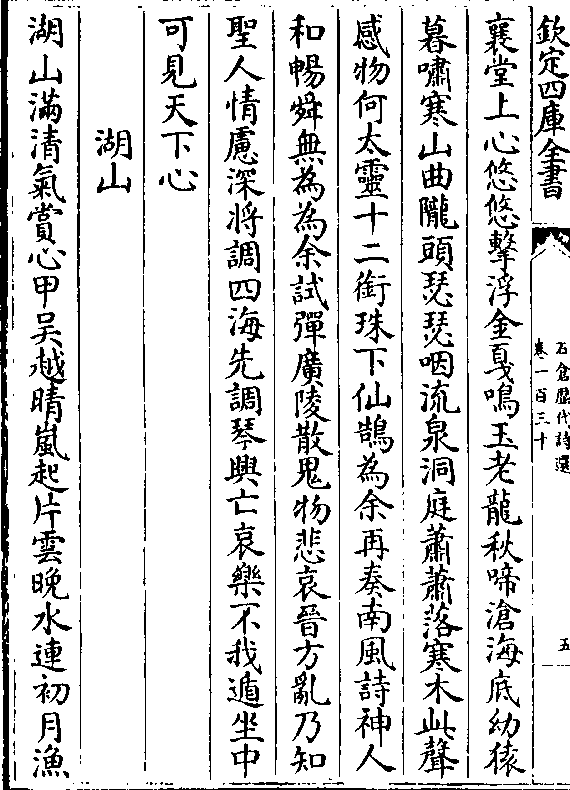 欽定四庫全書
石倉歷代詩選
卷一百三十
五
襄堂上心悠悠擊浮金戛鳴玉老龍秋啼滄海底幼猿
暮嘯寒山曲隴頭瑟瑟咽流泉洞庭蕭蕭落寒木此聲
感物何太靈十二銜珠下仙鵠為余再奏南風詩神人
和暢舜無為為余試彈廣陵散鬼物悲哀晉方亂乃知
聖人情慮深將調四海先調琴興亡哀樂不我遁坐中
可見天下心
湖山
湖山滿清氣賞心甲吳越晴嵐起片雲晚水連初月漁